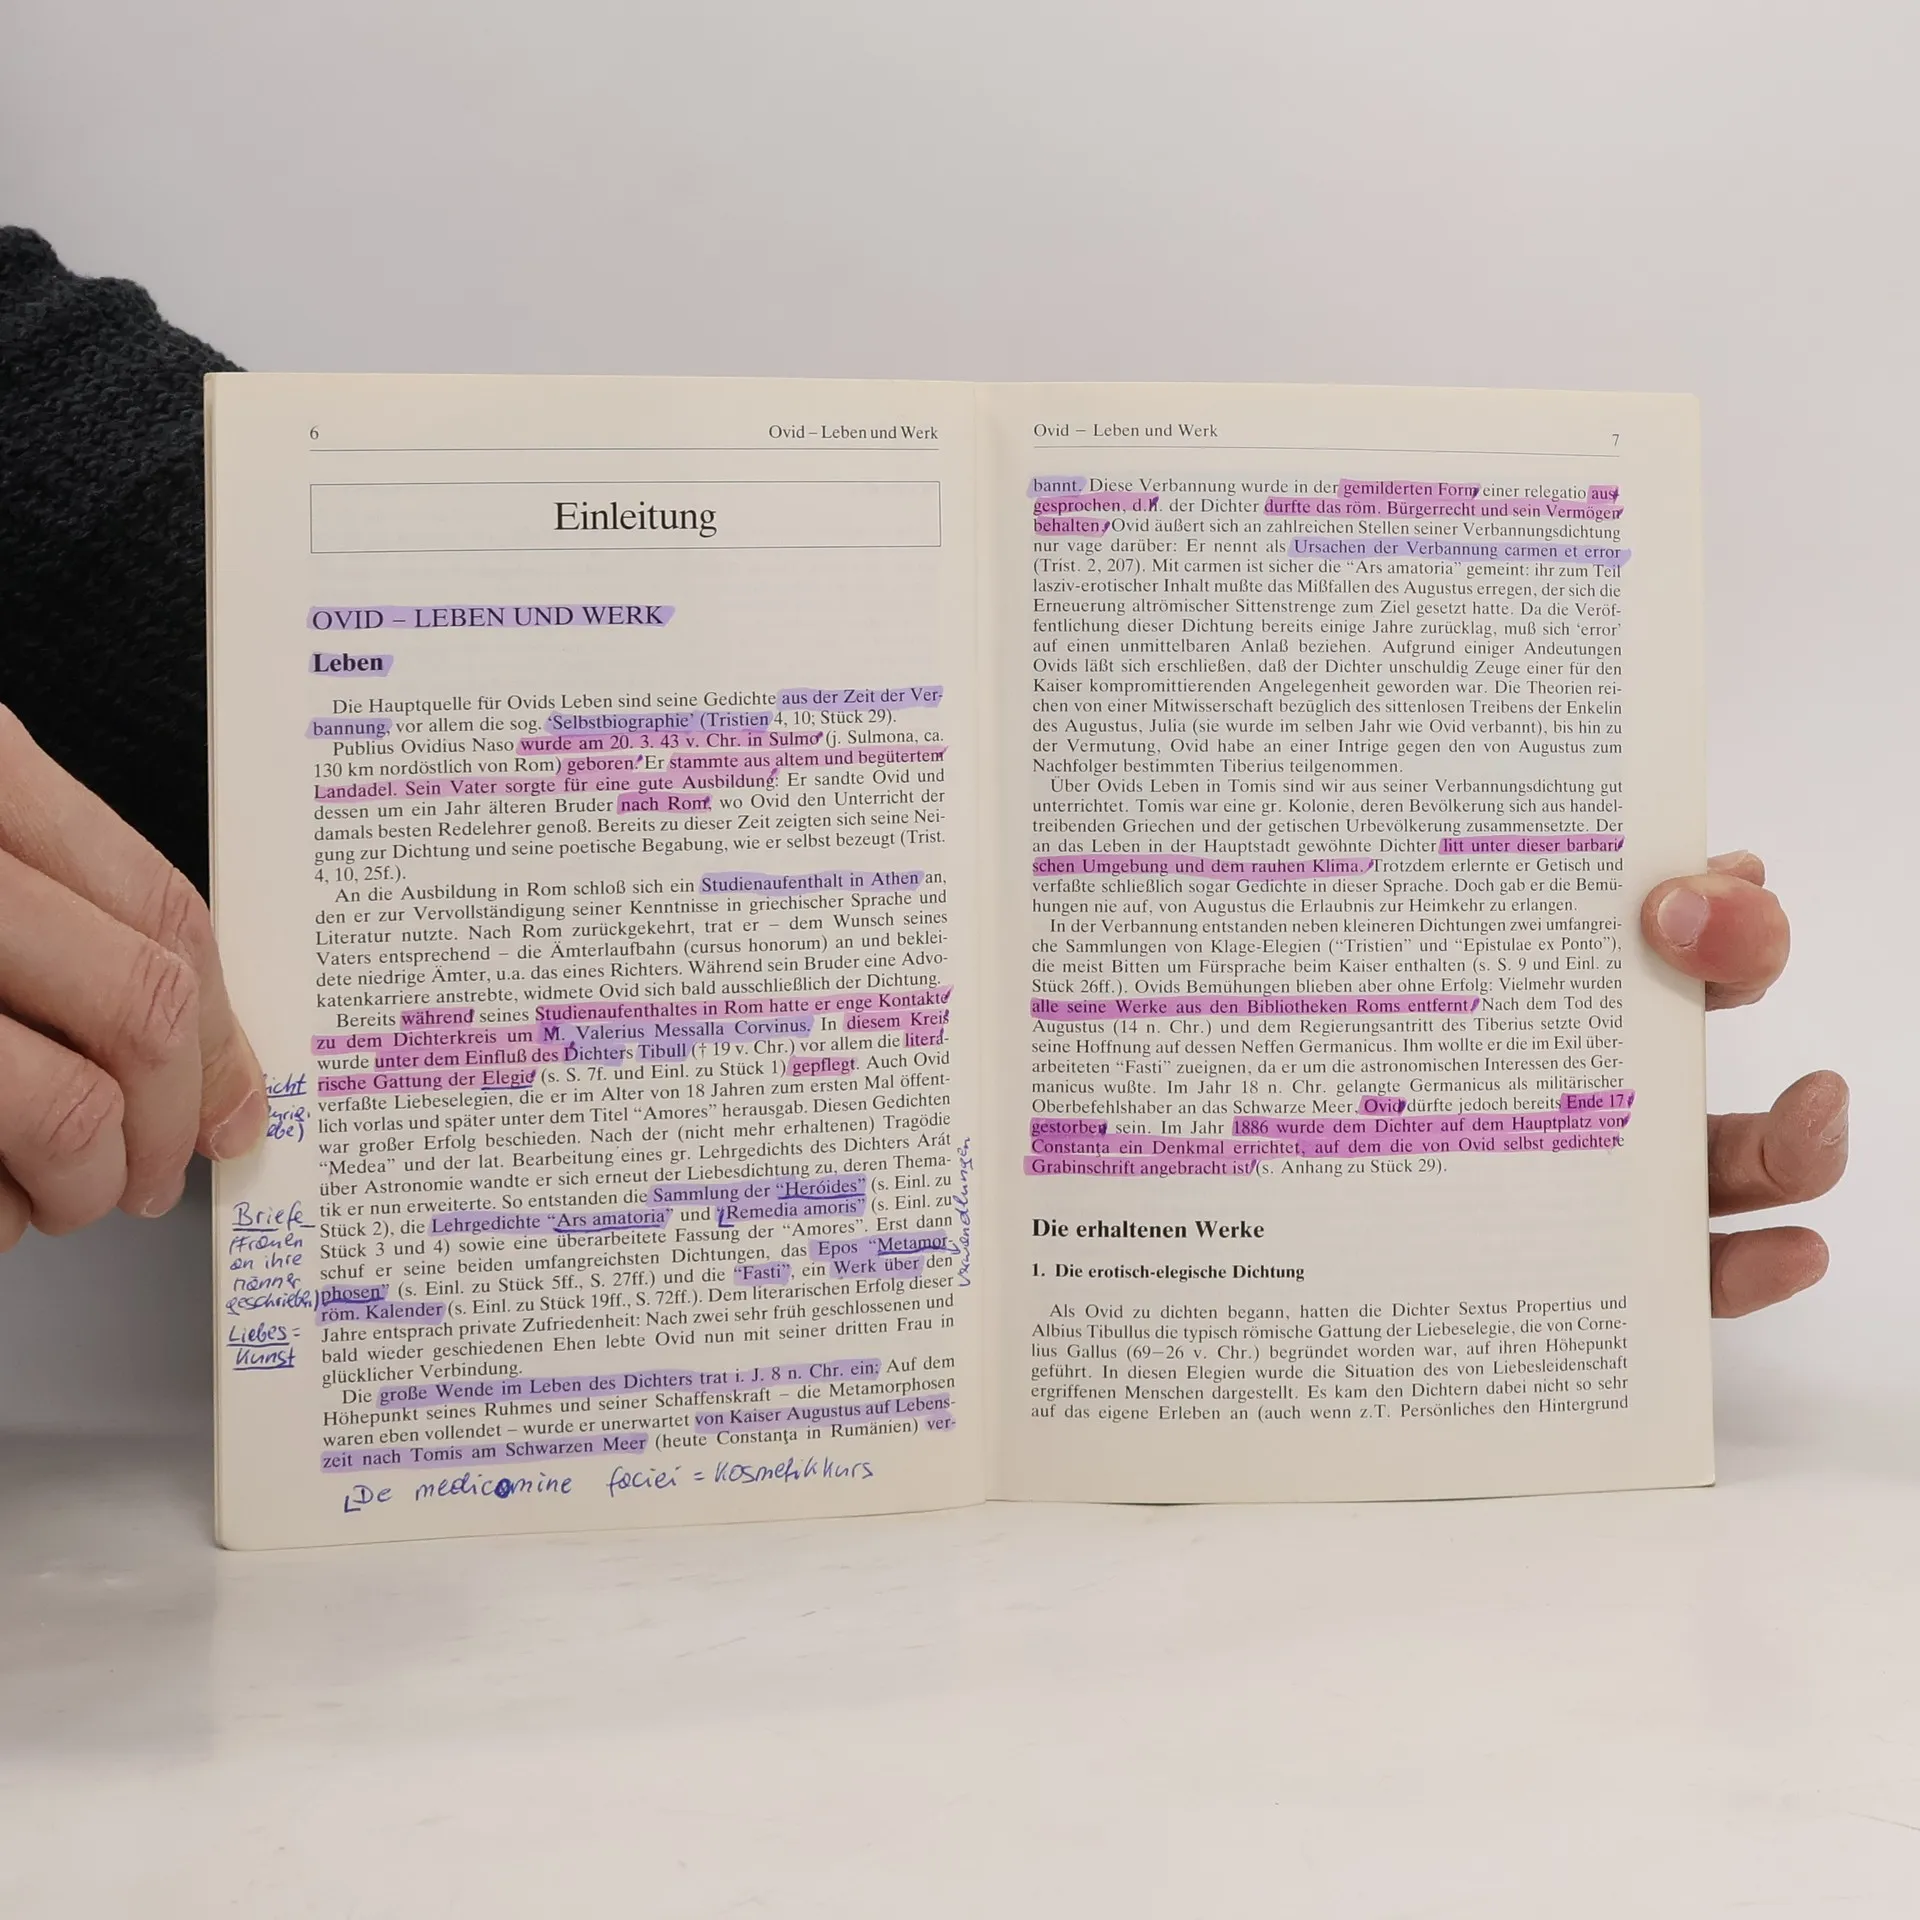 6
Ovid – Leben und Werk
Einleitung
OVID – LEBEN UND WERK
Leben
Die Hauptquelle für Ovids Leben sind seine Gedichte aus der Zeit der Ver-
bannung, vor allem die sog. ‘Selbstbiographie’ (Tristien 4, 10; Stück 29).
Publius Ovidius Naso wurde am 20. 3. 43 v. Chr. in Sulmo (j. Sulmona, ca.
130 km nordöstlich von Rom) geboren. Er stammte aus altem und begütertem
Landadel. Sein Vater sorgte für eine gute Ausbildung: Er sandte Ovid und
dessen um ein Jahr älteren Bruder nach Rom, wo Ovid den Unterricht der
damals besten Redelehrer genoß. Bereits zu dieser Zeit zeigten sich seine Nei-
gung zur Dichtung und seine poetische Begabung, wie er selbst bezeugt (Trist.
4, 10, 25f.).
An die Ausbildung in Rom schloß sich ein Studienaufenthalt in Athen an,
den er zur Vervollständigung seiner Kenntnisse in griechischer Sprache und
Literatur nutzte. Nach Rom zurückgekehrt, trat er – dem Wunsch seines
Vaters entsprechend – die Ämterlaufbahn (cursus honorum) an und beklei-
dete niedrige Ämter, u.a. das eines Richters. Während sein Bruder eine Advo-
katenkarriere anstrebte, widmete Ovid sich bald ausschließlich der Dichtung.
Bereits während seines Studienaufenthaltes in Rom hatte er enge Kontakte
zu dem Dichterkreis um M. Valerius Messalla Corvinus. In diesem Kreis
wurde unter dem Einfluß des Dichters Tibull († 19 v. Chr.) vor allem die litera-
rische Gattung der Elegie (s. S. 7f. und Einl. zu Stück 1) gepflegt. Auch Ovid
verfaßte Liebeselegien, die er im Alter von 18 Jahren zum ersten Mal öffent-
lich vorlas und später unter dem Titel “Amores” herausgab. Diesen Gedichten
war großer Erfolg beschieden. Nach der (nicht mehr erhaltenen) Tragödie
“Medea” und der lat. Bearbeitung eines gr. Lehrgedichts des Dichters Arát
über Astronomie wandte er sich erneut der Liebesdichtung zu, deren Thema-
tik er nun erweiterte. So entstanden die Sammlung der “Heróides” (s. Einl. zu
Stück 2), die Lehrgedichte “Ars amatoria” und “Remedia amoris” (s. Einl. zu
Stück 3 und 4) sowie eine überarbeitete Fassung der “Amores”. Erst dann
schuf er seine beiden umfangreichsten Dichtungen, das Epos “Metamor-
phosen” (s. Einl. zu Stück 5ff., S. 27ff.) und die “Fasti”, ein Werk über den
röm. Kalender (s. Einl. zu Stück 19ff., S. 72ff.). Dem literarischen Erfolg dieser
Jahre entsprach private Zufriedenheit: Nach zwei sehr früh geschlossenen und
bald wieder geschiedenen Ehen lebte Ovid nun mit seiner dritten Frau in
glücklicher Verbindung.
Die große Wende im Leben des Dichters trat i. J. 8 n. Chr. ein: Auf dem
Höhepunkt seines Ruhmes und seiner Schaffenskraft – die Metamorphosen
waren eben vollendet – wurde er unerwartet von Kaiser Augustus auf Lebens-
zeit nach Tomis am Schwarzen Meer (heute Constanţa in Rumänien) ver-
Briefe
(Frauen
an ihre
Männer
geschrieben)
Liebes=
kunst
Verwandlungen
De medicamine faciei = Kosmetikkurs
Ovid – Leben und Werk
7
bannt. Diese Verbannung wurde in der gemilderten Form einer relegatio aus-
gesprochen, d.h. der Dichter durfte das röm. Bürgerrecht und sein Vermögen
behalten. Ovid äußert sich an zahlreichen Stellen seiner Verbannungsdichtung
nur vage darüber: Er nennt als Ursachen der Verbannung carmen et error
(Trist. 2, 207). Mit carmen ist sicher die “Ars amatoria” gemeint: ihr zum Teil
lasziv-erotischer Inhalt mußte das Mißfallen des Augustus erregen, der sich die
Erneuerung altrömischer Sittenstrenge zum Ziel gesetzt hatte. Da die Veröf-
fentlichung dieser Dichtung bereits einige Jahre zurücklag, muß sich ‘error’
auf einen unmittelbaren Anlaß beziehen. Aufgrund einiger Andeutungen
Ovids läßt sich erschließen, daß der Dichter unschuldig Zeuge einer für den
Kaiser kompromittierenden Angelegenheit geworden war. Die Theorien rei-
chen von einer Mitwisserschaft bezüglich des sittenlosen Treibens der Enkelin
des Augustus, Julia (sie wurde im selben Jahr wie Ovid verbannt), bis hin zu
der Vermutung, Ovid habe an einer Intrige gegen den von Augustus zum
Nachfolger bestimmten Tiberius teilgenommen.
Über Ovids Leben in Tomis sind wir aus seiner Verbannungsdichtung gut
unterrichtet. Tomis war eine gr. Kolonie, deren Bevölkerung sich aus handel-
treibenden Griechen und der getischen Urbevölkerung zusammensetzte. Der
an das Leben in der Hauptstadt gewöhnte Dichter litt unter dieser barbari-
schen Umgebung und dem rauhen Klima. Trotzdem erlernte er Getisch und
verfaßte schließlich sogar Gedichte in dieser Sprache. Doch gab er die Bemü-
hungen nie auf, von Augustus die Erlaubnis zur Heimkehr zu erlangen.
In der Verbannung entstanden neben kleineren Dichtungen zwei umfangrei-
che Sammlungen von Klage-Elegien (“Tristien” und “Epistulae ex Ponto”),
die meist Bitten um Fürsprache beim Kaiser enthalten (s. S. 9 und Einl. zu
Stück 26ff.). Ovids Bemühungen blieben aber ohne Erfolg: Vielmehr wurden
alle seine Werke aus den Bibliotheken Roms entfernt. Nach dem Tod des
Augustus (14 n. Chr.) und dem Regierungsantritt des Tiberius setzte Ovid
seine Hoffnung auf dessen Neffen Germanicus. Ihm wollte er die im Exil über-
arbeiteten “Fasti” zueignen, da er um die astronomischen Interessen des Ger-
manicus wußte. Im Jahr 18 n. Chr. gelangte Germanicus als militärischer
Oberbefehlshaber an das Schwarze Meer. Ovid dürfte jedoch bereits Ende 17
gestorben sein. Im Jahr 1886 wurde dem Dichter auf dem Hauptplatz von
Constanţa ein Denkmal errichtet, auf dem die von Ovid selbst gedichtete
Grabinschrift angebracht ist (s. Anhang zu Stück 29).
Die erhaltenen Werke
1. Die erotisch-elegische Dichtung
Als Ovid zu dichten begann, hatten die Dichter Sextus Propertius und
Albius Tibullus die typisch römische Gattung der Liebeselegie, die von Corne-
lius Gallus (69–26 v. Chr.) begründet worden war, auf ihren Höhepunkt
geführt. In diesen Elegien wurde die Situation des von Liebesleidenschaft
ergriffenen Menschen dargestellt. Es kam den Dichtern dabei nicht so sehr
auf das eigene Erleben an (auch wenn z.T. Persönliches den Hintergrund